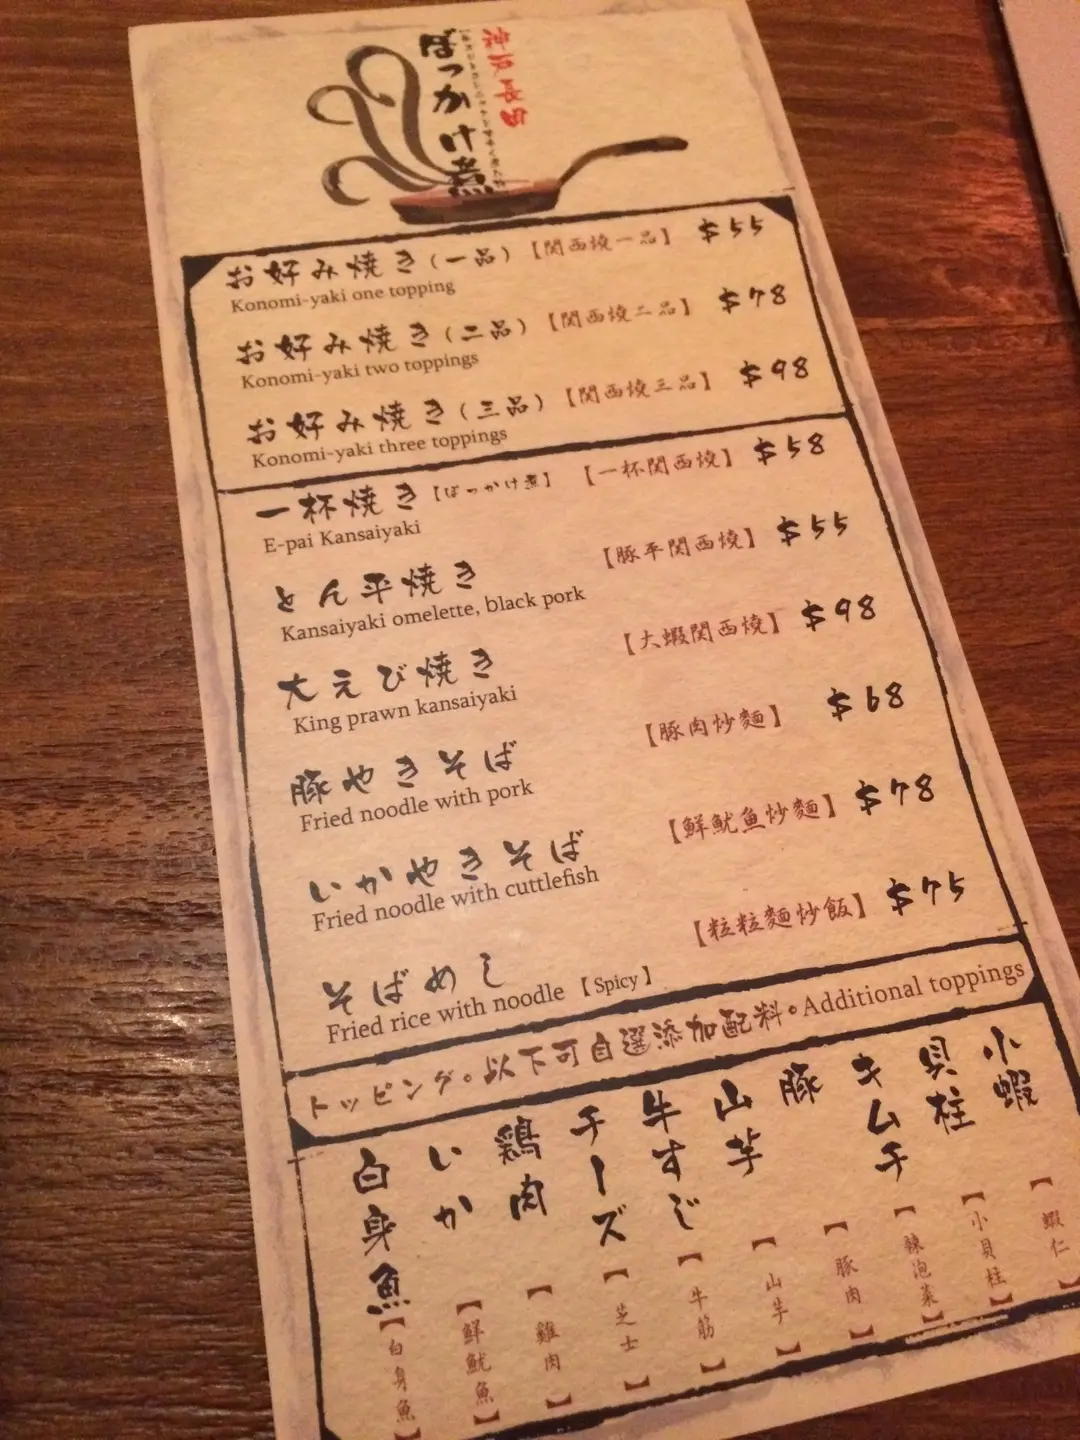 ぼっかけ煮
お好み焼き（一品）【関西燒一品】 $55
Konomi-yaki one topping
お好み焼き（二品）【関西燒二品】 $78
Konomi-yaki two toppings
お好み焼き（三品）【関西燒三品】 $98
Konomi-yaki three toppings
一杯焼き【ぼっかけ煮】 【一杯関西燒】 $58
E-pai Kansaiyaki
とん平焼き 【豚平関西燒】 $55
Kansaiyaki omelette, black pork
大えび焼き 【大蝦関西燒】 $98
King prawn kansaiyaki
豚やきそば 【豚肉炒麵】 $68
Fried noodle with pork
いかやきそば 【鮮魷魚炒麵】 $78
Fried noodle with cuttlefish
そばめし 【粒粒麵炒飯】 $75
Fried rice with noodle【Spicy】
トッピング。以下可自選添加配料。Additional toppings
小蝦【蝦仁】
貝柱【小貝柱】
キムチ【辣泡菜】
豚【豚肉】
山芋【山芋】
牛すじ【牛筋】
チーズ【芝士】
鶏肉【雞肉】
いか【鮮魷魚】
白身魚【白身魚】